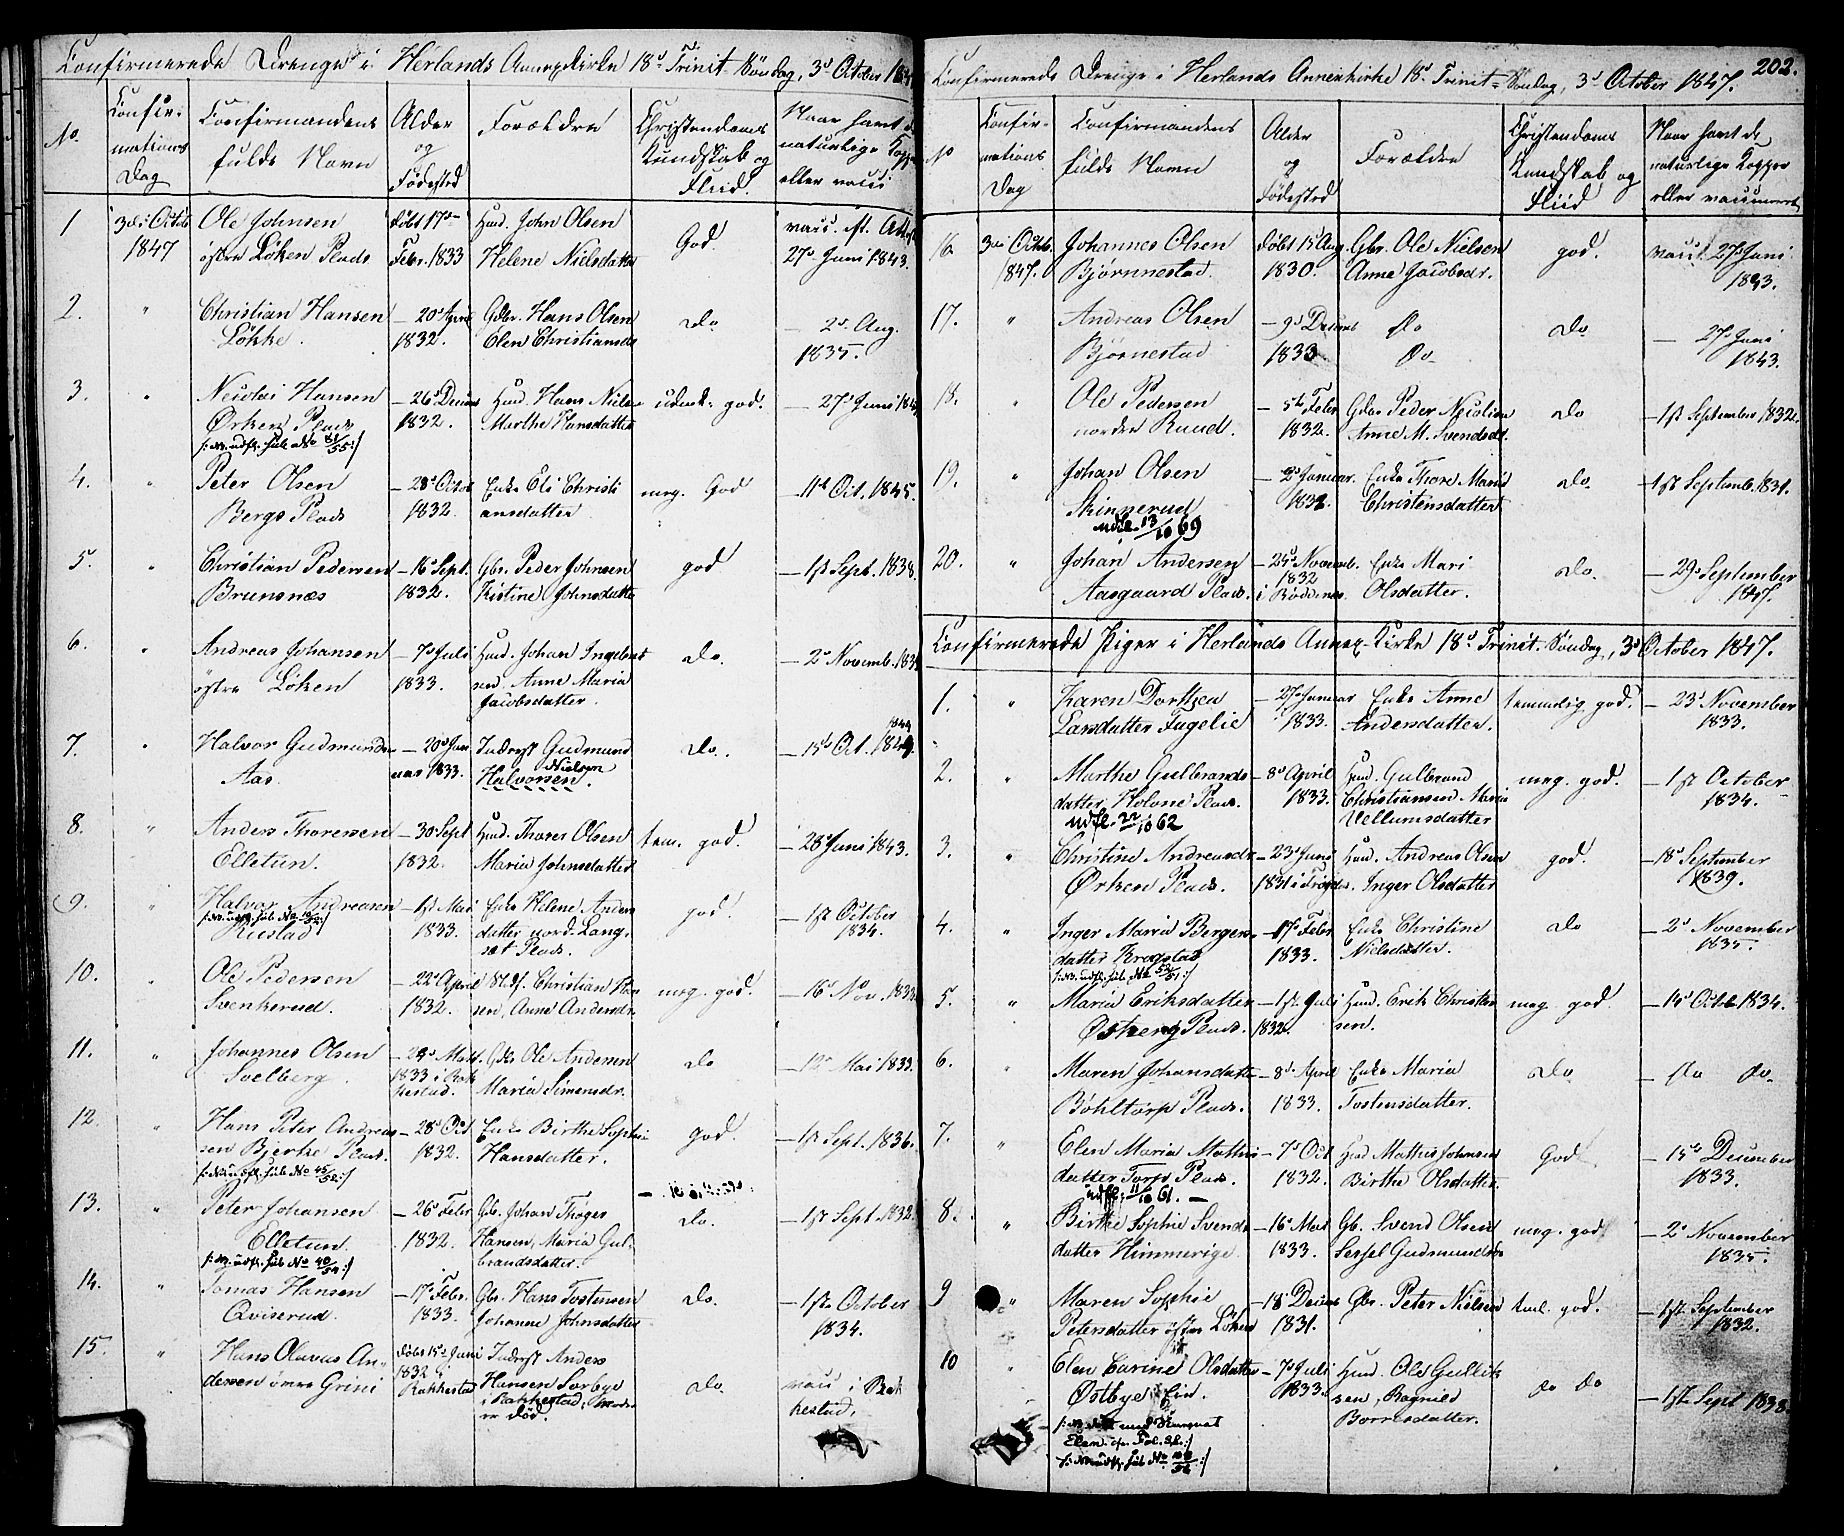 Confirmerede Drenge i Herlands Annexkirke 18d Trinit. Søndag, 3d October 184
No.
Confir-
mations
Dag
Confirmandens
fulde Navn
Alder
og
Fødested
Forældre
Christendoms
Kundskab og
Fliid.
Naar havt de
naturlige Kopper
eller vacci
1
3die Octob.
1847
Ole Johnsen
østre Løken Plads
Født 17de
Febr. 1833
Huusm. John Olsen
Helene Nielsdatter
God.
vacc. if. Attest
27de Juni 1843.
2.
"
Christian Hansen
Løkke.
— 20d April
1832.
Gdbr. Hans Olsen
Elen Christiansdr
do
— 2d Aug.
1835.
3.
"
Nicolai Hansen
Ørken Plads
— 26d Decemb
1832.
Huusm. Hans Nielsen
Marthe Hansdatter
udmk: god.
— 27d Juni 184
4.
"
Peter Olsen
Bergs Plads
— 28d Octob
1832.
Enke Eli Christi
ansdatter
meg. God
— 11d Oct. 1845.
5.
"
Christian Pedersen
Brunsnæs
— 16d Sept.
1832.
Gbr. Peder Johnsen
Kistine Johnsdatter
god
— 1ste Sept. 1838.
6.
"
Andreas Johansen
østre Løken
— 7d Juli
1833.
Huusm. Johan Ingebret
sen Anne Maria
Jacobsdatter.
do.
— 2d Novemb. 183
7.
"
Halvor Gudmundsen
Aas.
— 20d Jan
uar 1833.
Inderst Gudmund
Nielsen
Halvorsen.
do.
1844
— 15d Oct. 184
8.
"
Anders Thoresen
Elletun.
— 30 Sept
1832.
Huusm. Thores Olsen
Maria Johnsdatter
tem. god.
— 28d Juni 1843.
9.
"
Halvor Andreasen
Rustad
— 1st Mai
1833.
Enke Helene Anders
datter nord. Lang-
sæt Plads.
god.
— 1ste October
1834.
10.
"
Ole Pedersen
Svenkerud.
— 22d April
1832.
Stedf. Christian Han
sen, Anne Andersdr.
meg. god.
— 16d Nov. 1833.
11.
"
Johannes Olsen
Solberg.
— 29d Mai
1833 i Rak
kestad.
Gdbr Ole Andersen
Maria Simensdr.
do
— 12d Mai 1833.
12.
"
Hans Peter Andreas
sen Bjerke Plads.
— 28d Oct
1832.
Enke Birthe Sophie
Hansdatter.
god.
— 1ste Sept. 1836.
13.
"
Peter Johansen
Elletun.
— 26d Febr
1832.
Gb. Johan Thøger
Hansen, Maria Gul-
brandsdatter.
do.
— 1ste Sept. 1832.
14.
"
Tomas Hansen
Qviserud.
— 17d Febr.
1833.
Gbr. Hans Tostensen
Johanne Johnsdatter
do.
— 1ste October
1834.
15.
"
Hans Olavus An-
dersen Grini
Født 15de Juni
1832 i
Rakkestad
Inderst Anders
Hansen Sorbye
i Rakkestad, Moder
er død.
do.
vacc i Rak
kestad,
202.
Confirmerede Drenge i Herlands Annexkirke 18d Trinit- Søndag, 3d October 1847.
No
Confir-
mations
Dag
Confirmandens
fulde Navn
Alder
og
Fødested
Forældre
Christendoms
Kundskab og
Fliid
Naar havt de
naturlige Kopper
eller vaccineret
16
3die Octob.
1847.
Johannes Olsen
Bjørnnestad.
Født 15 Aug
1830.
Gbr. Ole Nielsen
Anne Jacobsdr.
god.
vacc. 27d Juni
1843.
17.
"
Andreas Olsen
Bjørnestad
— 9d Decemb
1833
Do
Do
do
— 27d Juni
1843.
18.
"
Ole Pedersen
nordre Ruud.
— 5te Febr
1832.
Gdbr Peder Nicolisen
Anne M. Svendsdr.
do
— 1st September 1832.
19.
"
Johan Olsen
Skinnerud
udfl. 13/10 69
— 2d Januar.
1832
Enke Thore Marie
Christensdatter
do.
— 1st Septemb. 1831.
20.
"
Johan Andersen
Aasgaard Plads.
— 24d Novemb.
1832
i Rødenes.
Enke Mari
Olsdatter.
do.
— 29d September
1847.
Confirmerede Piger i Herlands Annex-Kirke 18d Trinit. Søndag, 3d October 1847.
1.
"
Karen Dorthea
Larsdatter Fugelie
— 27d Januar
1833.
Enke Anne
Andersdatter.
temmelig god.
— 23d November
1833.
2.
"
Marthe Gulbrands-
datter Holone Plads.
udfl. 22/10 62
— 8d April
1833.
Huusm. Gulbrand
Christiansen Maria
Vellumsdatter
meg. god.
— 1st October
1834.
3.
"
Christine Andreasdr
Ørken Plads.
— 23d Juni
1831 i Trøgstd.
Huusm. Andreas Olsen
Inger Olsdatter
god.
— 18d September
1839.
4.
"
Inger Maria Bergers-
datter Krogstad
— 17d Febr
1833.
Enke Christine
Nielsdatter.
do
— 2d November
1835.
5.
"
Maria Eriksdatter
Østreng Plads.
— 1ste Juli
1832.
Huusm. Erik Christen
sen.
meg. god
— 14d Octob 1834.
6.
"
Maren Johansdatter
Böhltorp Plads.
— 8d April
1833.
Enke Maria
Tostensdatter.
do
— do do.
7.
"
Elen Maria Mathis
datter Torp Plads.
udfl. 11/10 61. —
— 7d Oct
1832.
Huusm Mathis Johnsen
Birthe Olsdatter.
God
— 15d December
1833.
8.
"
Birthe Sophie Svends
datter Himmerige
— 16d Mai
1833.
Gb. Svend Olsen
Sessel Gudmundsdr
meg. god
— 2d November
1835.
9
"
Maren Sophie
Petersdatter østre Løken
— 18d Decemb
1831.
Gbr. Peter Nielsen
teml. god.
— 1st September
1832.
10
"
Elen Carine Olsdatter
Østbye Eie.
— 7d Juli
1833.
Huusm. Ole Gullik
sen, Ragnild
Borresdatter.
do do
— 1ste Sept 1838.